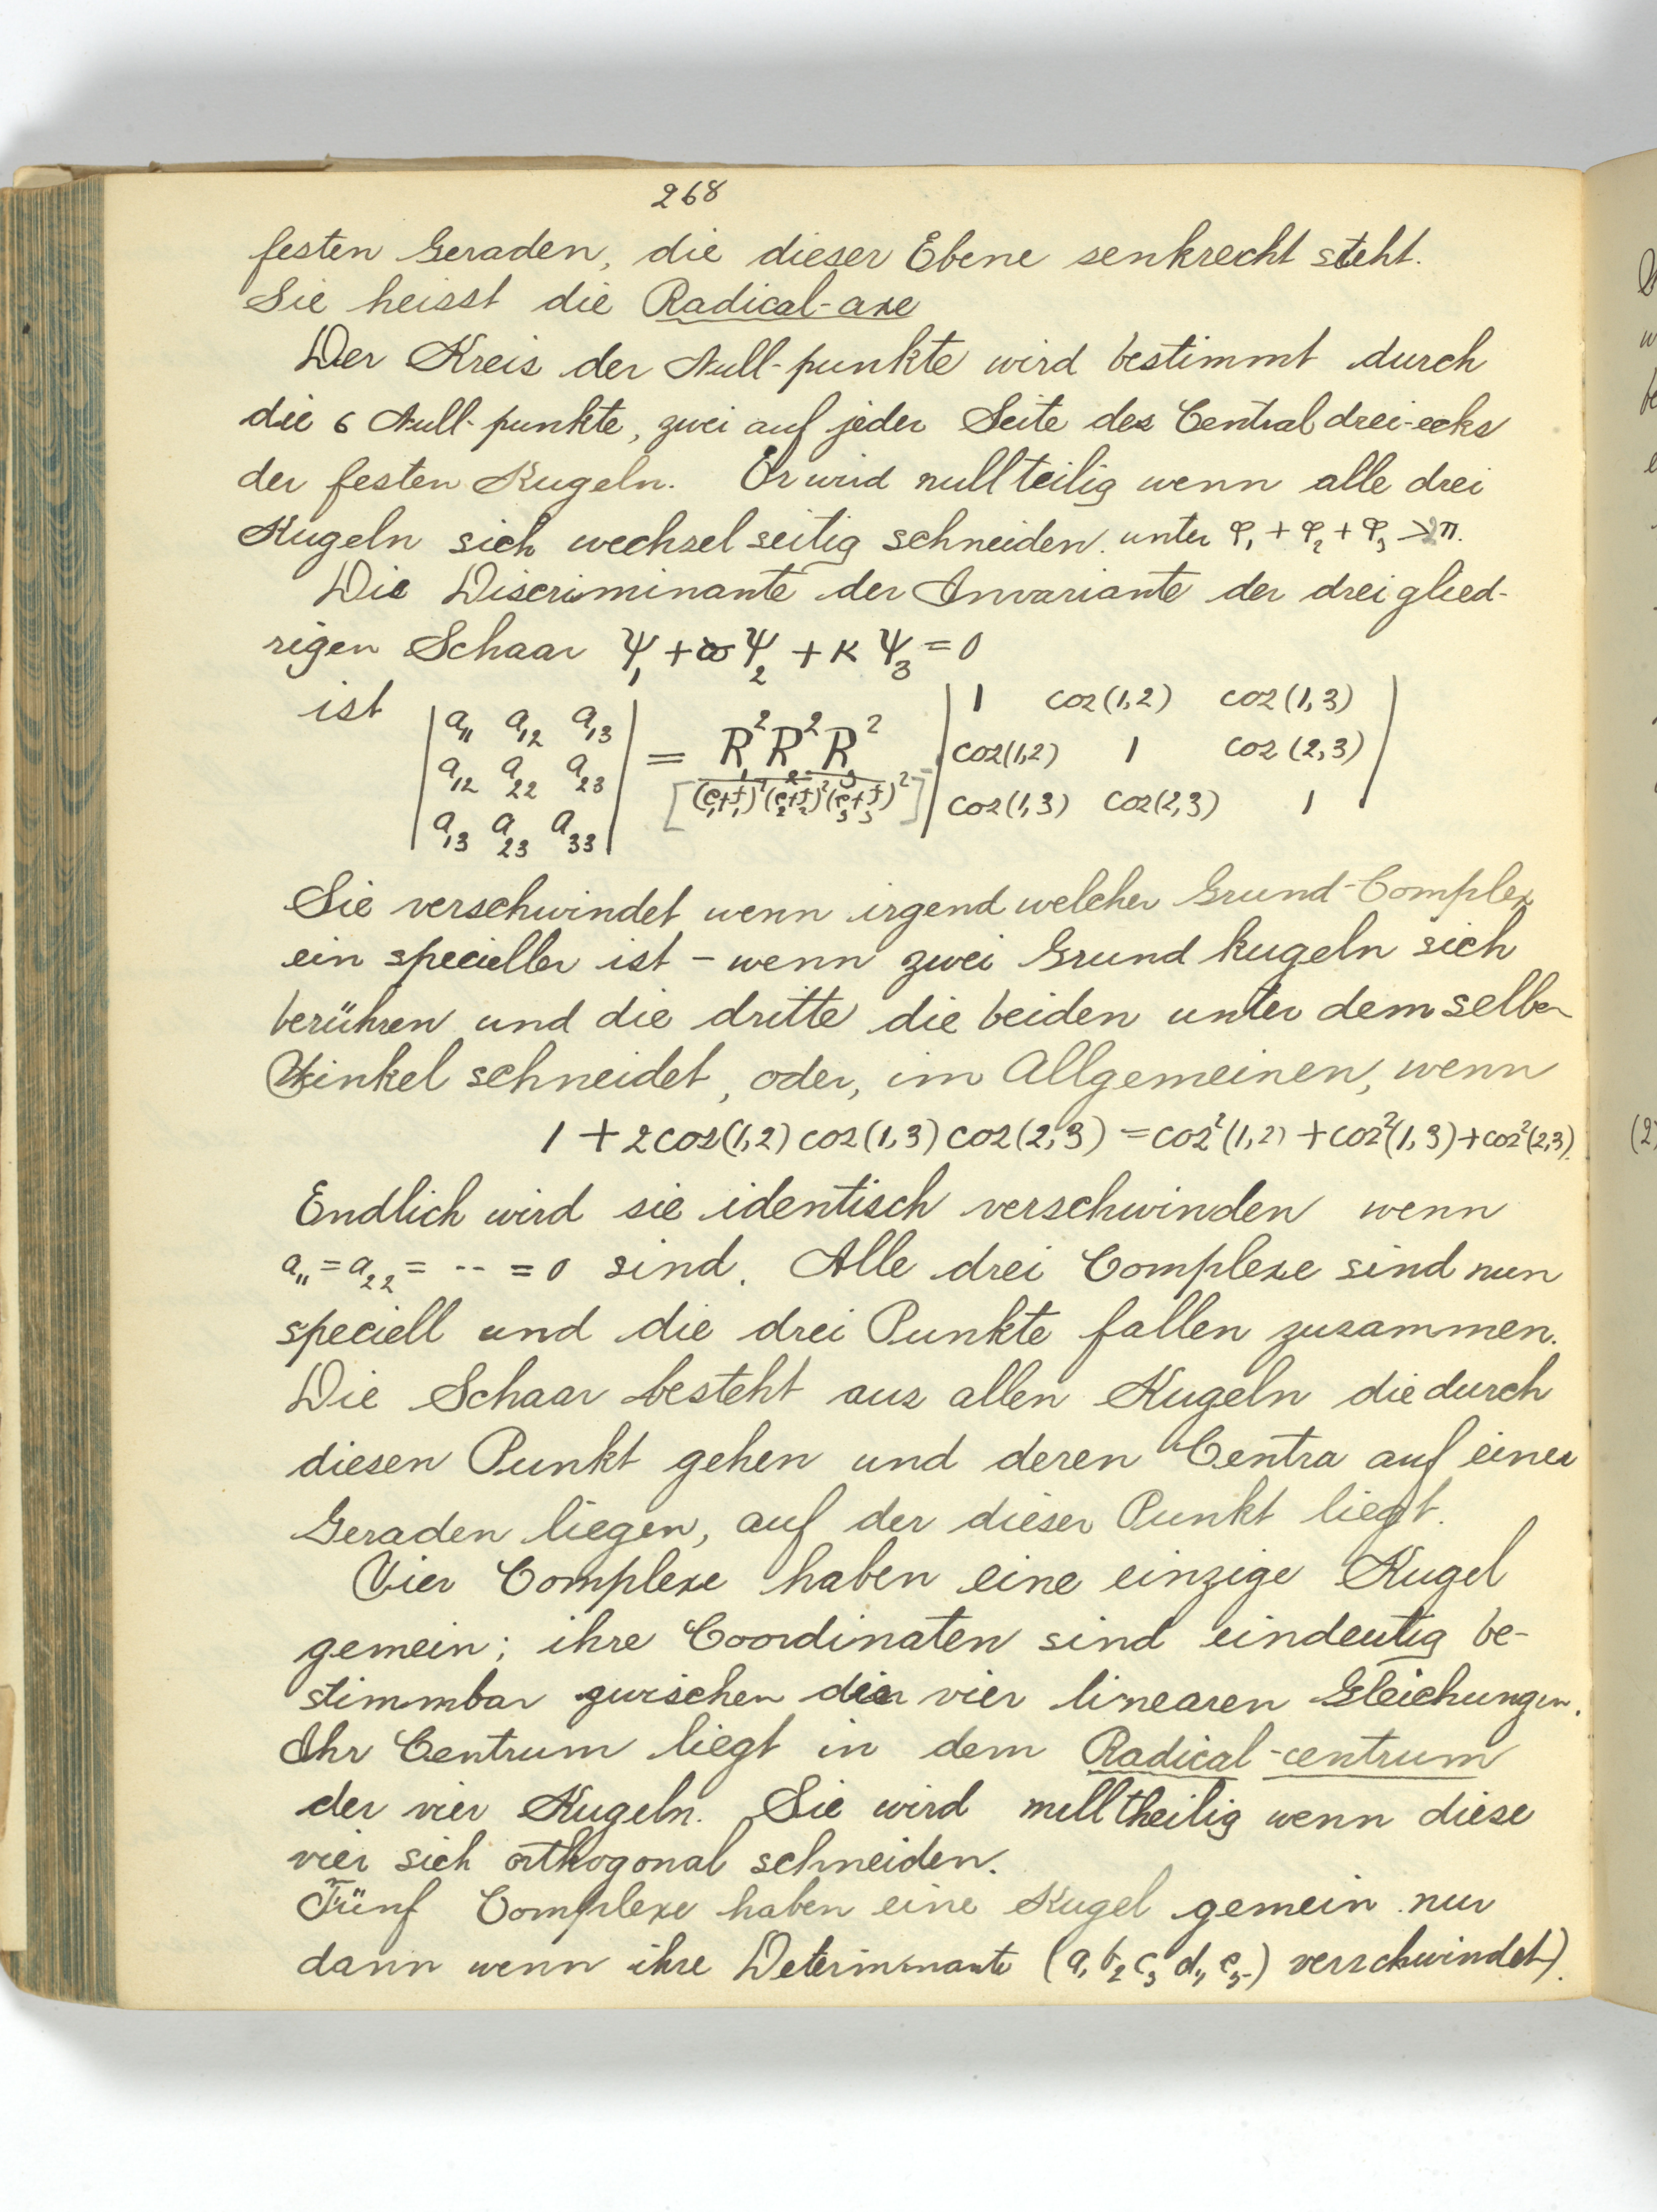 268
festen Geraden, die dieser Ebene senkrecht steht.
Sie heisst die Radical-axe
Der Kreis der Null-punkte wird bestimmt durch
die 6 Null-punkte, zwei auf jeder Seite des Central drei-ecks
der festen Kugeln. Er wird nullteilig wenn alle drei
Kugeln sich wechselseitig schneiden. unter φ₁ + φ₂ + φ₃ > π.
Die Discriminante der Invariante der dreiglied-
rigen Schaar Ψ₁ + ∞ Ψ₂ + κ Ψ₃ = 0
ist | a₁₁ a₁₂ a₁₃ | = R₁² R₂² R₃² | 1 cos(1,2) cos(1,3) |
| a₁₂ a₂₂ a₂₃ | [(e₁+f₁)² (e₂+f₂)² (e₃+f₃)²] | cos(1,2) 1 cos(2,3) |
| a₁₃ a₂₃ a₃₃ | | cos(1,3) cos(2,3) 1 |
Sie verschwindet wenn irgend welcher Grund-Complex
ein specieller ist – wenn zwei Grundkugeln sich
berühren und die dritte die beiden unter demselben
Winkel schneidet, oder, im Allgemeinen, wenn
1 + 2 cos(1,2) cos(1,3) cos(2,3) = cos²(1,2) + cos²(1,3) + cos²(2,3).
Endlich wird sie identisch verschwinden wenn
a₁₁ = a₂₂ = -- = 0 sind. Alle drei Complexe sind nun
speciell und die drei Punkte fallen zusammen.
Die Schaar besteht aus allen Kugeln die durch
diesen Punkt gehen und deren Centra auf einer
Geraden liegen, auf der dieser Punkt liegt.
Vier Complexe haben eine einzige Kugel
gemein; ihre Coordinaten sind eindeutig be-
stimmbar zwischen den vier linearen Gleichungen.
Ihr Centrum liegt in dem Radical-centrum
der vier Kugeln. Sie wird nulltheilig wenn diese
vier sich orthogonal schneiden.
Fünf Complexe haben eine Kugel gemein nur
dann wenn ihre Determinante (a₁ b₂ c₃ d₄ e₅) verschwindet).
(2)